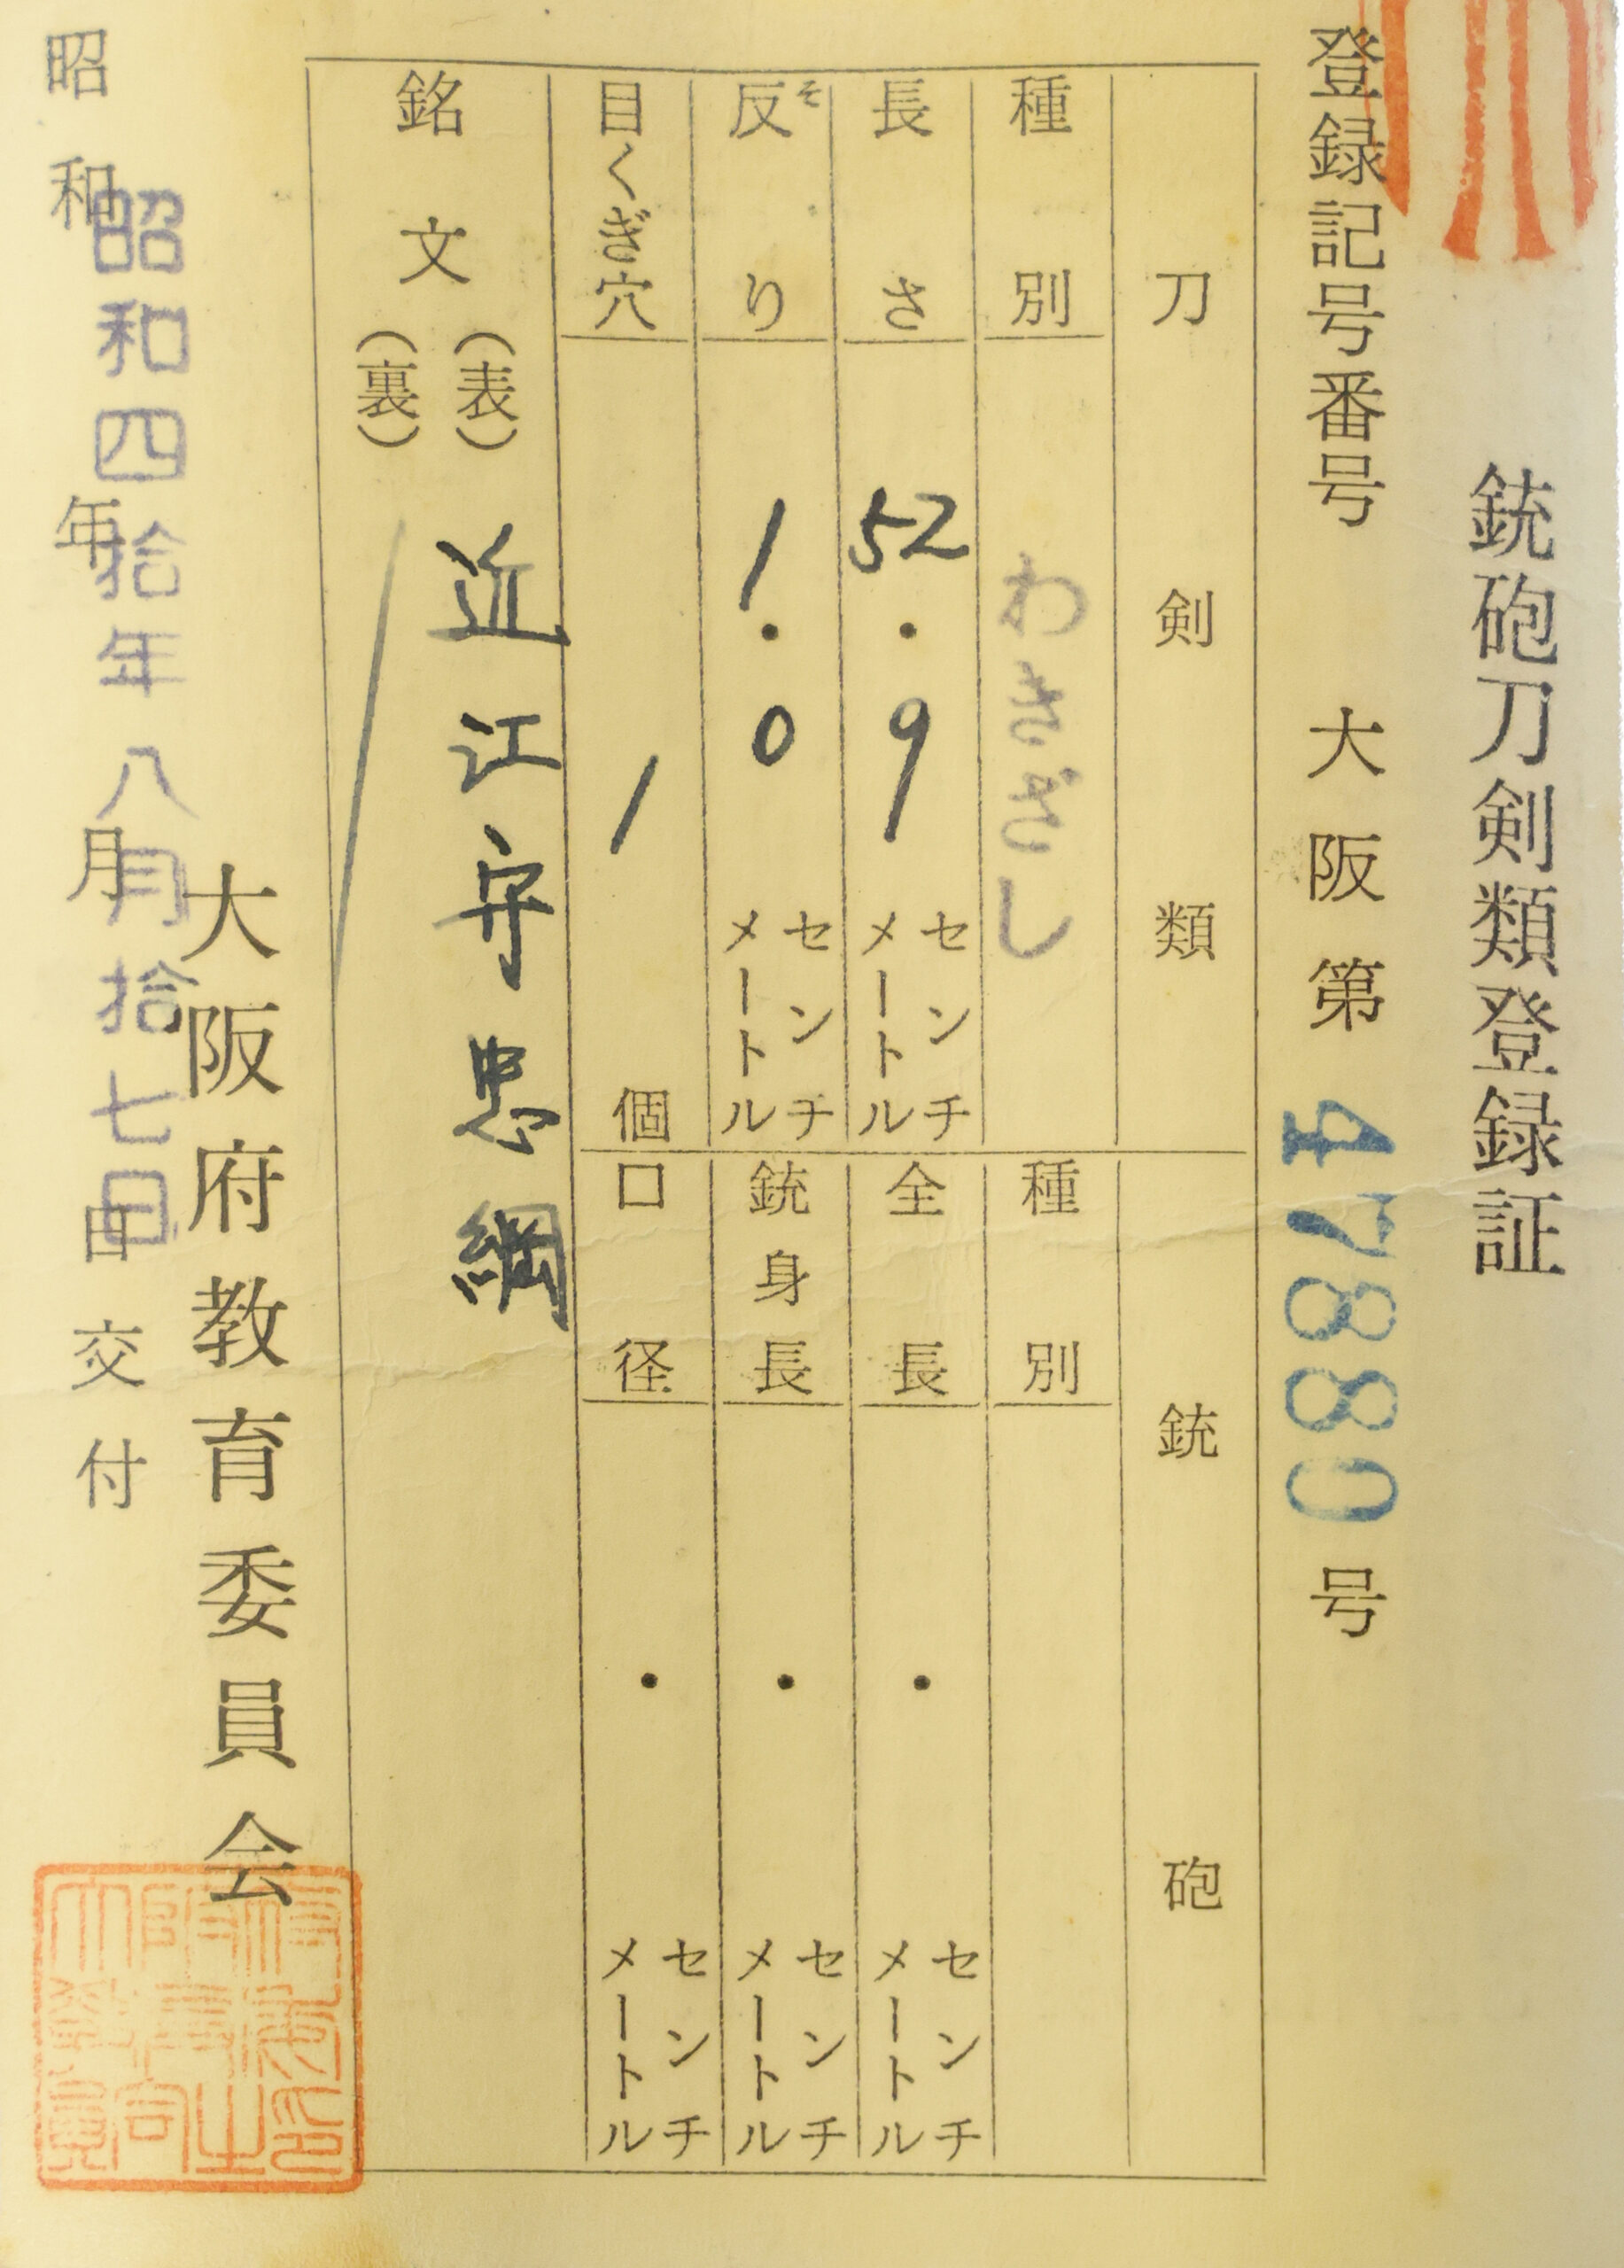 銃砲刀剣類登録証
登録記号番号 大阪第 47880 号
刀剣類
種別 わきざし
長さ 52.9 センチメートル
反り 1.0 センチメートル
そ
目くぎ穴 1 個
銘文
(表) 近江守忠綱
(裏)
銃砲
種別
全長 ・ センチメートル
銃身長 ・ センチメートル
口径 ・ センチメートル
大阪府教育委員会
昭和四拾年八月拾七日
昭和 年 月 日 交付